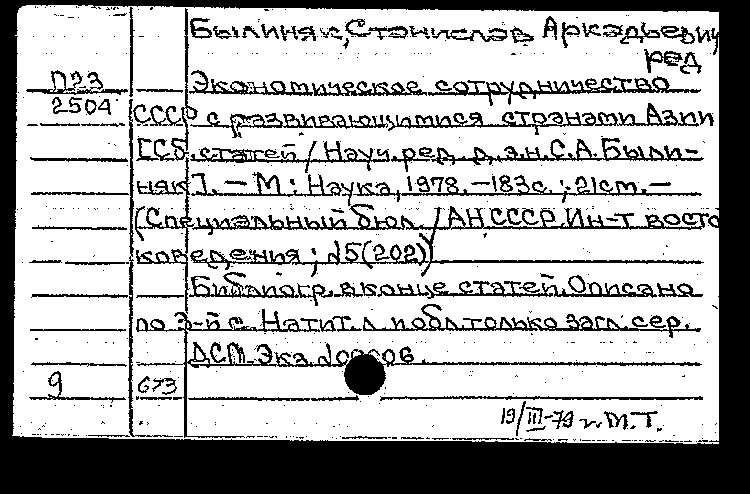 Былиняк, Станислав Аркадьевич
ред
П23 Экономическое сотрудничество
2504 СССР с развивающимися странами Азии
[Сб. статей / Науч. ред. д.э.н. С.А. Были-
няк]. – М: Наука, 1978. – 183с.; 21см. –
(Специальный бюл. / АН СССР. Ин-т восто
коведения; №5(202))
Библиогр. в конце статей. Описано
по 3-й с. На тит. л и обл. только загл. сер.
ДСП Экз.
9 673
19/III-79 г. М.Т.